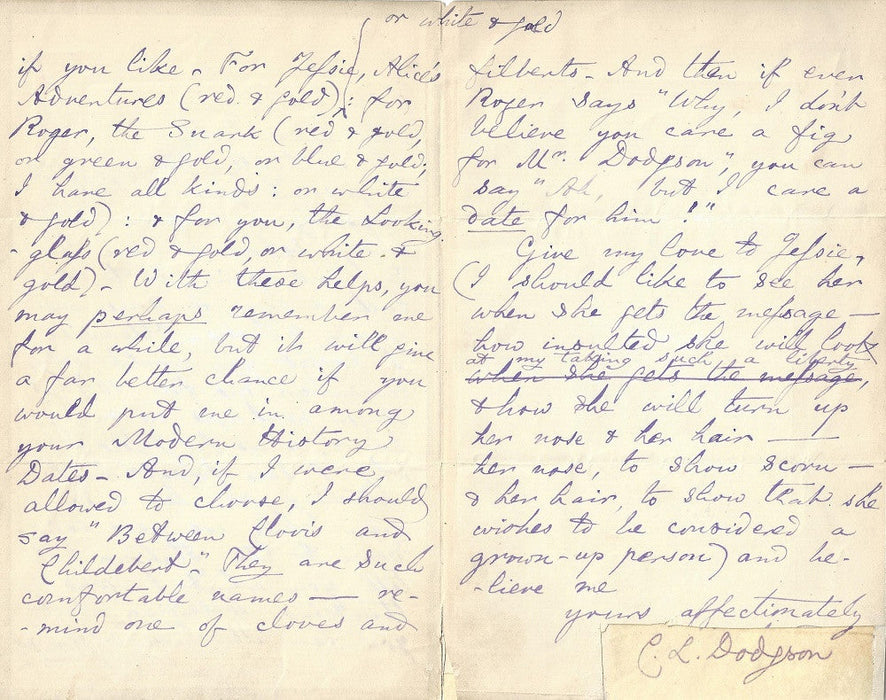 or white & gold
if you like - For Jessie, Alice's
Adventures (red & gold) : for
Roger, the Snark (red & gold,
or green & gold, or blue & gold;
I have all kinds : or white
& gold) : & for you, the Looking-
-glass (red & gold, or white &
gold) - With these helps, you
may perhaps remember me
for a while, but it will give
a far better chance if you
would put me in among
your Modern History
Dates - And, if I were
allowed to choose, I should
say "Between Clovis and
Childebert." They are such
comfortable names — re-
-mind one of cloves and
filberts - And then if even
Roger says "Why, I don't
believe you care a fig
for Mr. Dodgson", you can
say "Ah, but I care a
date for him!"
Give my love to Jessie,
(I should like to see her
when she gets the message —
how insulted she will look
at my taking such a liberty
when she gets the message,
& how she will turn up
her nose & her hair —
her nose, to show scorn —
& her hair, to show that she
wishes to be considered a
grown-up person) and be-
-lieve me
yours affectionately
C. L. Dodgson